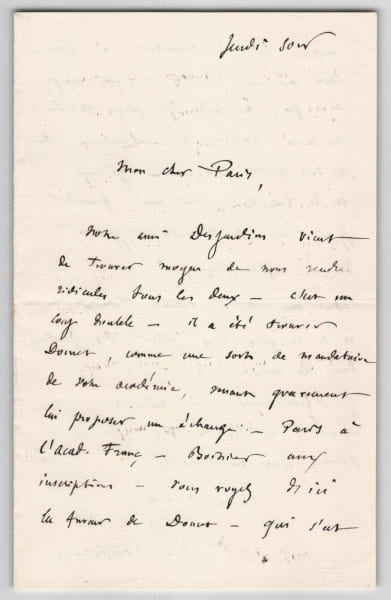 Jeudi soir
Mon cher Paris,
Notre ami Desjardins vient
de trouver moyen de nous rendre
ridicules tous les deux — c'est un
coup double — il a été trouver
Doucet, comme une sorte de mandataire
de votre académie, venant gravement
lui proposer un échange — Paris à
l'Acad. Franç — Boissier aux
inscriptions — vous voyez d'ici
la fureur de Doucet — qui s'est